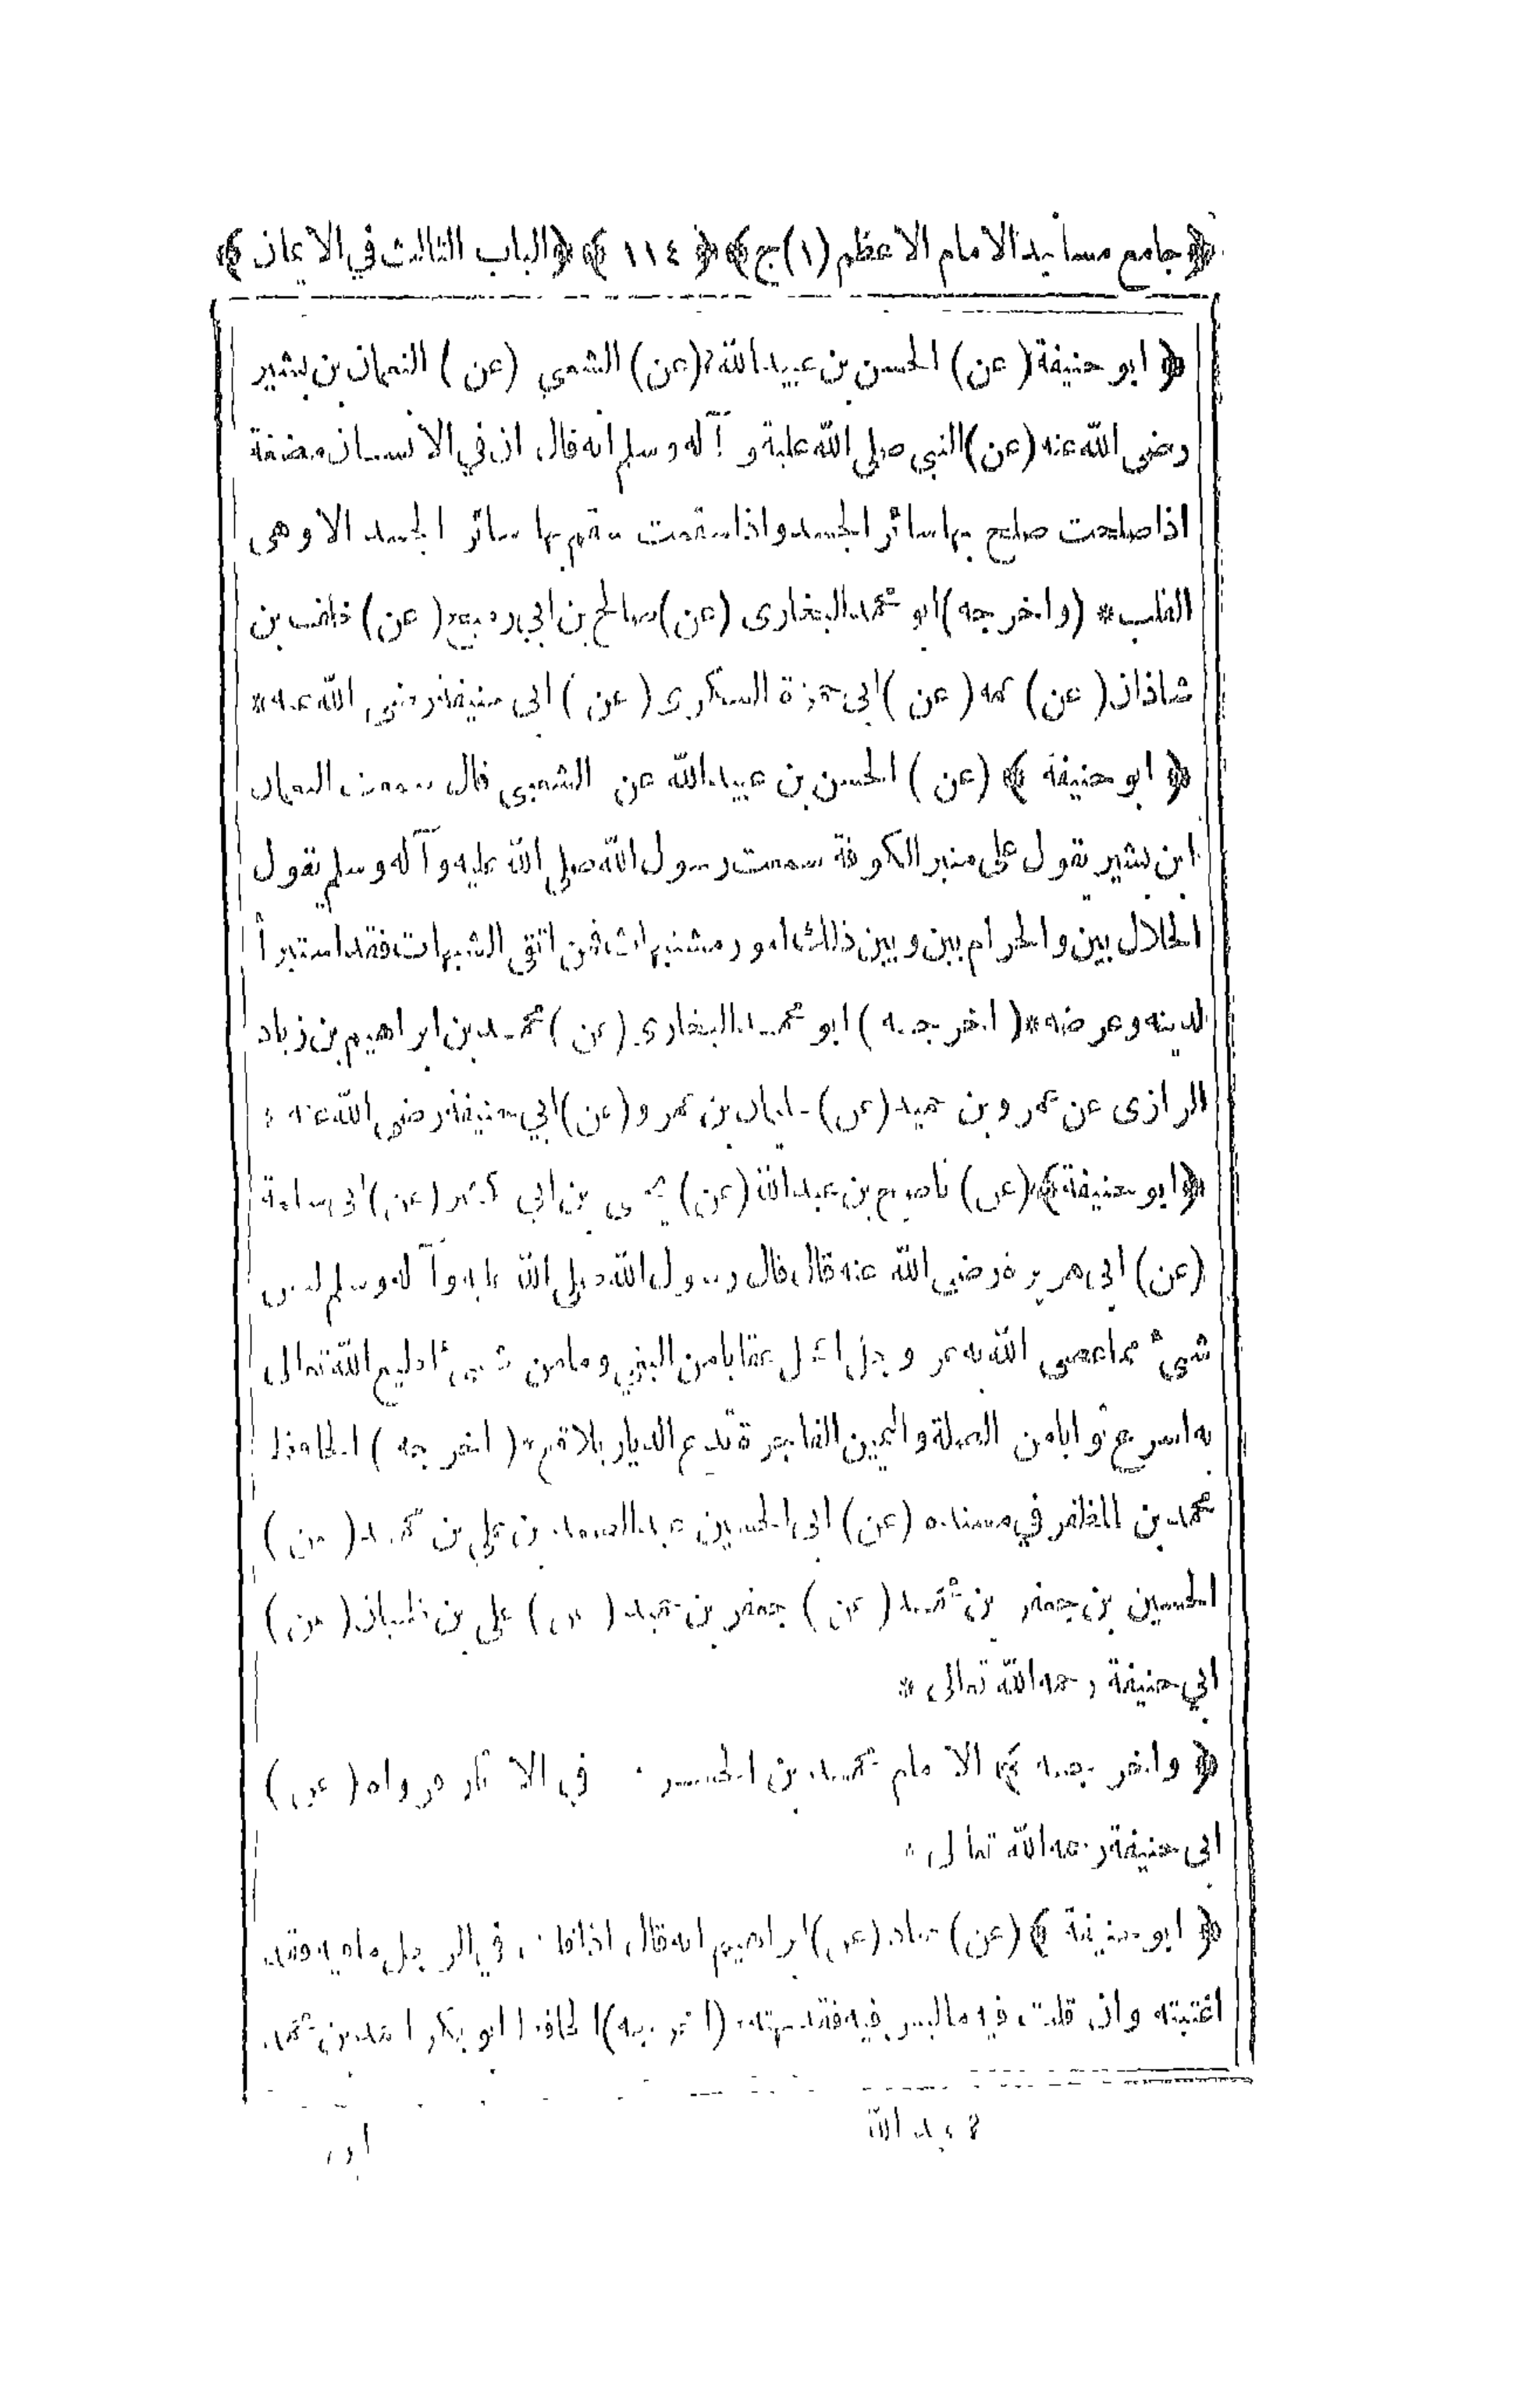 ﴿جامع مسانيد الامام الاعظم (١) ج﴾ ﴿١١٤﴾ ﴿الباب الثالث في الايمان﴾
﴿ ابو حنيفة (عن) الحسن بن عبيد الله ٢ (عن) الشعبي (عن) النعمان بن بشير
رضى الله عنه (عن) النبي صلى الله عليه و آله وسلم انه قال ان في الانسان مضغة
اذا صلحت صلح بها سائر الجسد واذا سقمت سقم بها سائر الجسد الا وهى
القلب * (واخرجه) ابو محمد البخارى (عن) صالح بن ابى رميح (عن) خلف بن
شاذان (عن) عمه (عن) ابى حمزة السكرى (عن) ابى حنيفة رضى الله عنه *
﴿ ابو حنيفة ﴾ (عن) الحسن بن عبيد الله عن الشعبى قال سمعت النعمان
ابن بشير يقول على منبر الكوفة سمعت رسول الله صلى الله عليه وآله وسلم يقول
الحلال بين والحرام بين وبين ذلك امور مشتبهات فمن اتقى الشبهات فقد استبرأ
لدينه وعرضه * (اخرجه) ابو محمد البخارى (عن) محمد بن ابراهيم بن زياد
الرازى عن عمرو بن حميد (عن) سليمان بن عمرو (عن) ابي حنيفة رضى الله عنه *
﴿ابو حنيفة﴾ (عن) ناصح بن عبد الله (عن) يحيى بن ابي كثير (عن) ابى سلمة
(عن) ابى هريرة رضي الله عنه قال قال رسول الله صلى الله عليه وآله وسلم ليس
شىء مما عصى الله به عز وجل اعجل عقابا من البغي وما من شىء اطيع الله تعالى
به اسرع ثوابا من الصلة واليمين الفاجرة تدع الديار بلاقع * (اخرجه) الحافظ
محمد بن المظفر في مسنده (عن) ابى الحسين عبد الصمد بن علي بن محمد (عن)
الحسين بن جعفر بن محمد (عن) جعفر بن حميد (عن) علي بن ظبيان (عن)
ابي حنيفة رحمه الله تعالى *
﴿ واخرجه ﴾ الامام محمد بن الحسن في الآثار فرواه (عن)
ابى حنيفة رحمه الله تعالى *
﴿ ابو حنيفة ﴾ (عن) حماد (عن) ابراهيم انه قال اذا قلت في الرجل ما فيه فقد
اغتبته وان قلت فيه ما ليس فيه فقد بهته * (اخرجه) الحافظ ابو بكر احمد بن محمد
٢ عبد الله
ابن